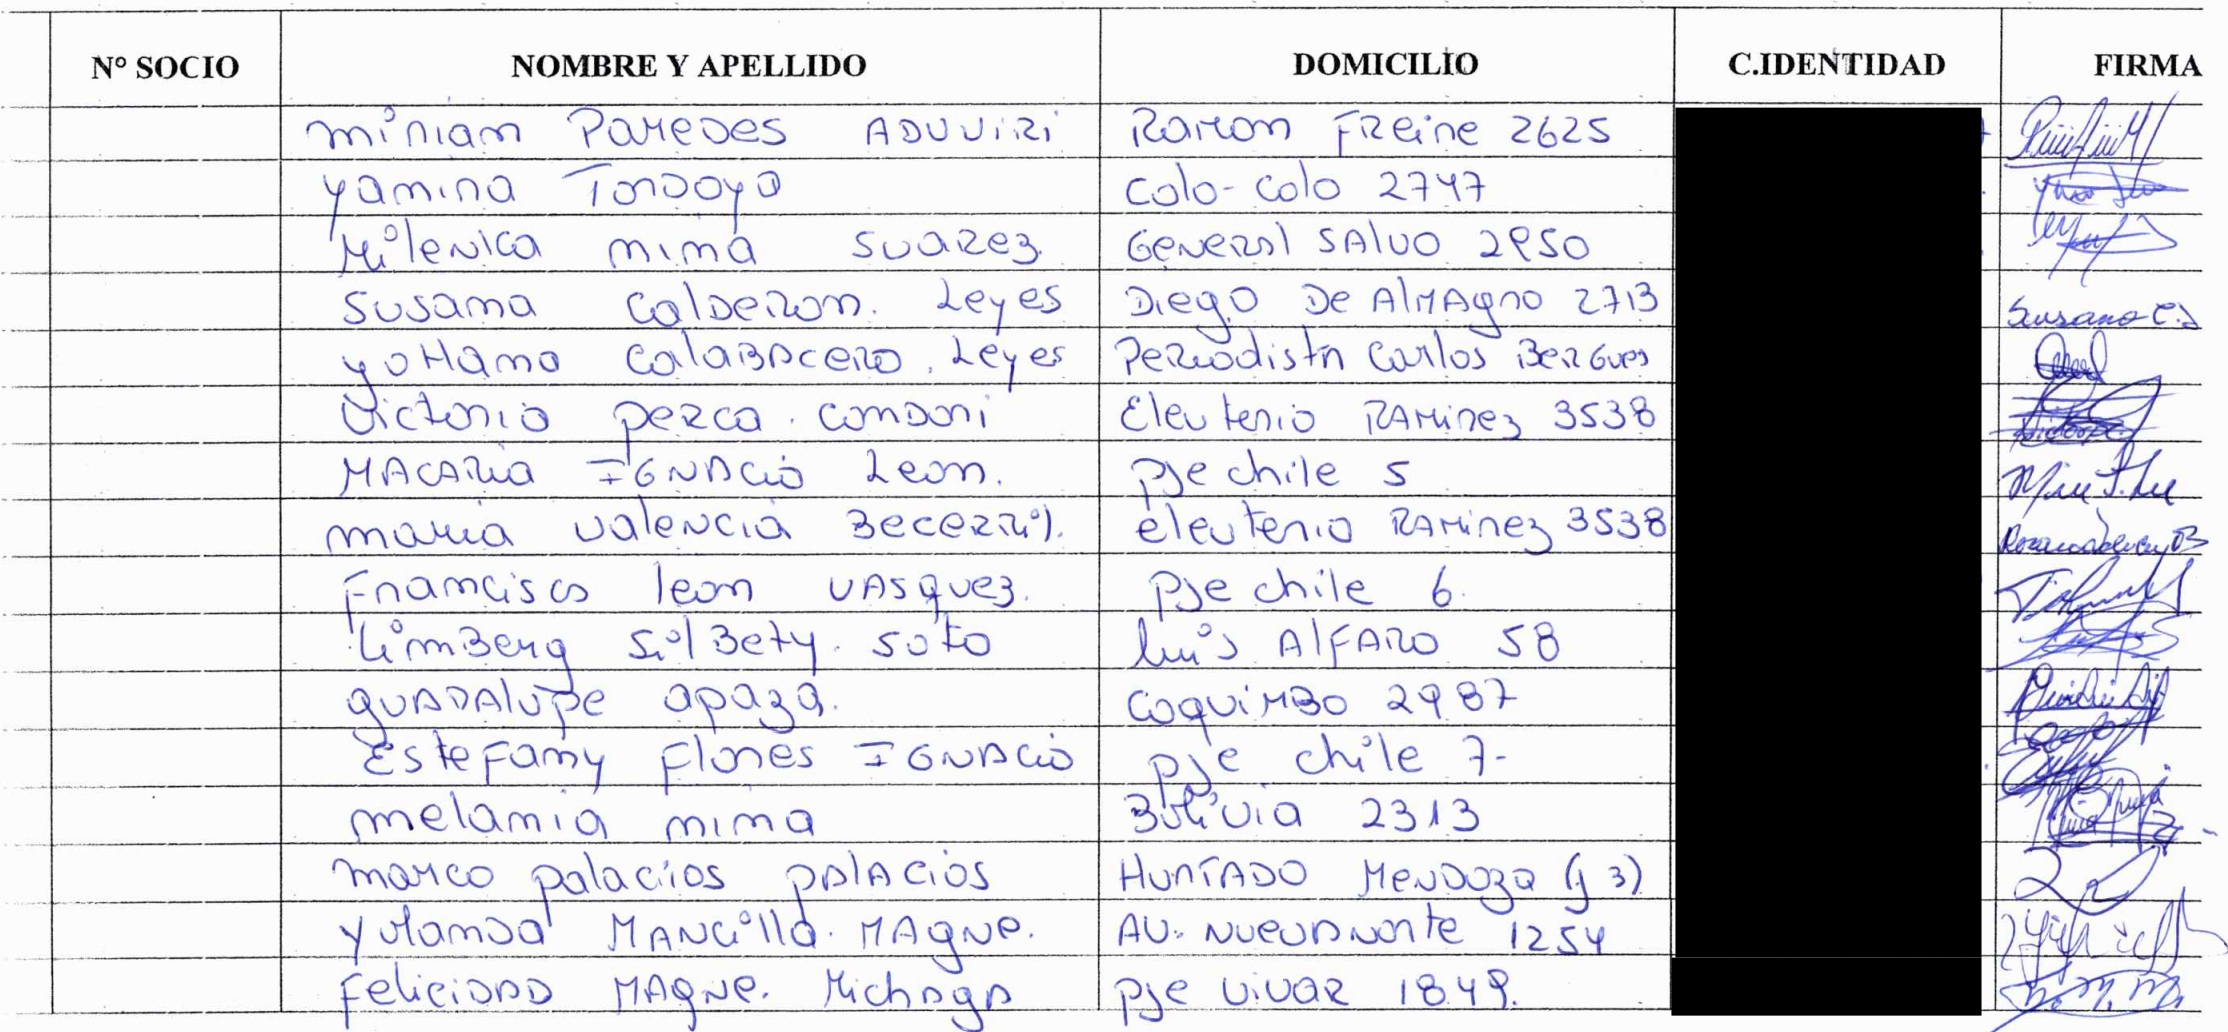 N° SOCIO NOMBRE Y APELLIDO DOMICILIO C.IDENTIDAD FIRMA
miriam Paredes ADUVIRI Ramon FReire 2625
yamina Tordoya Colo-Colo 2747
Milenka mima SuaRez. GeneRal SAlvo 2950
Susana CalDeRon. Leyes Diego De AlMAgro 2713 Susana C.
yoHana CalaBaceRo. Leyes PeRiodista Carlos
Victoria peRca. Condori Eleuterio RAMirez 3538
MACARia IGNAcio Leon. pje chile 5
maria valencia BeceRRil. eleuterio RAMirez 3538
Francisco leon VAsquez. pje chile 6.
limBerg SilBety. soto luis AlFARo 58
guADAlupe apaza. CoquiMBo 2987
EsteFany Flores IGNAcio pje chile 7-
melania mima Bolivia 2313
marco palacios pAlAcios HurTADO MeNDoza (J 3)
yolanda MANcilla. MAgNe. AV. NuevA Norte 1254
FeliciDAD MAgNe. MichAgA pje vivaR 1849.